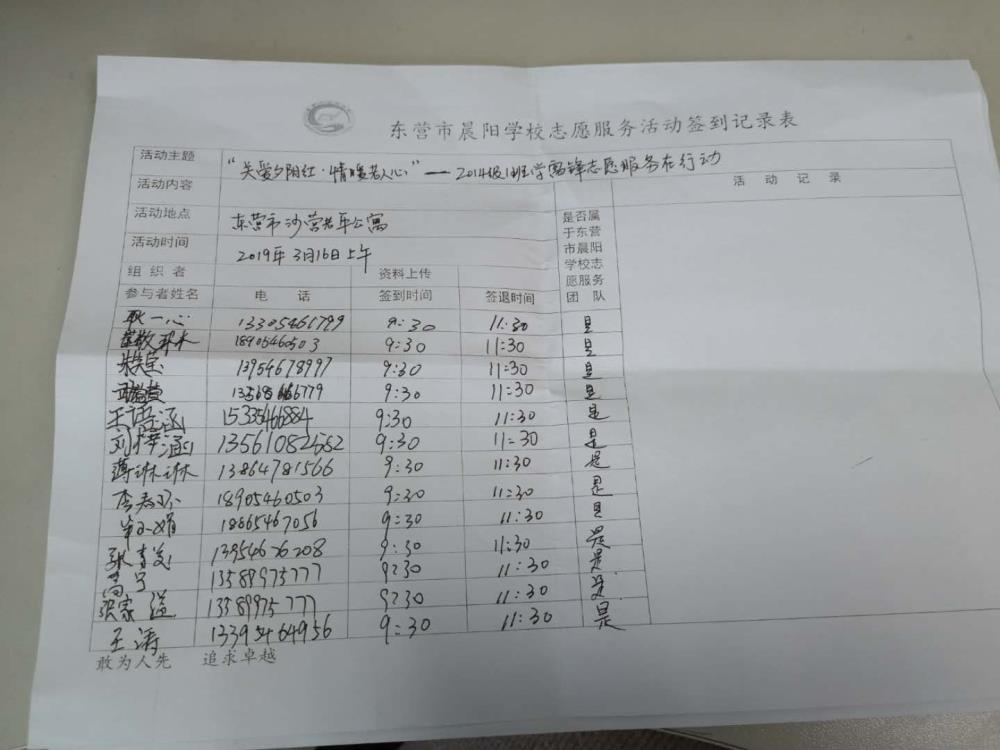 东营市晨阳学校志愿服务活动签到记录表
活动主题 “关爱夕阳红·情暖老人心”——2014级1班学雷锋志愿服务在行动
活动内容 活动记录
活动地点 东营市沙营老年公寓 是否属于东营市晨阳学校志愿服务团队
活动时间 2019年3月16日上午
组织者 资料上传
参与者姓名 电话 签到时间 签退时间
耿一心 13305461799 9:30 11:30 是
18905460503 9:30 11:30 是
13954678997 9:30 11:30 是
9:30 11:30 是
王语涵 15335466884 9:30 11:30 是
刘梓涵 13561082682 9:30 11:30 是
薄琳琳 13864781566 9:30 11:30 是
李 18905460503 9:30 11:30 是
18865467056 9:30 11:30 是
张 13954676208 9:30 11:30 是
13589975777 9:30 11:30 是
张家溢 13589975777 9:30 11:30 是
王涛 13395464956 9:30 11:30 是
敢为人先 追求卓越